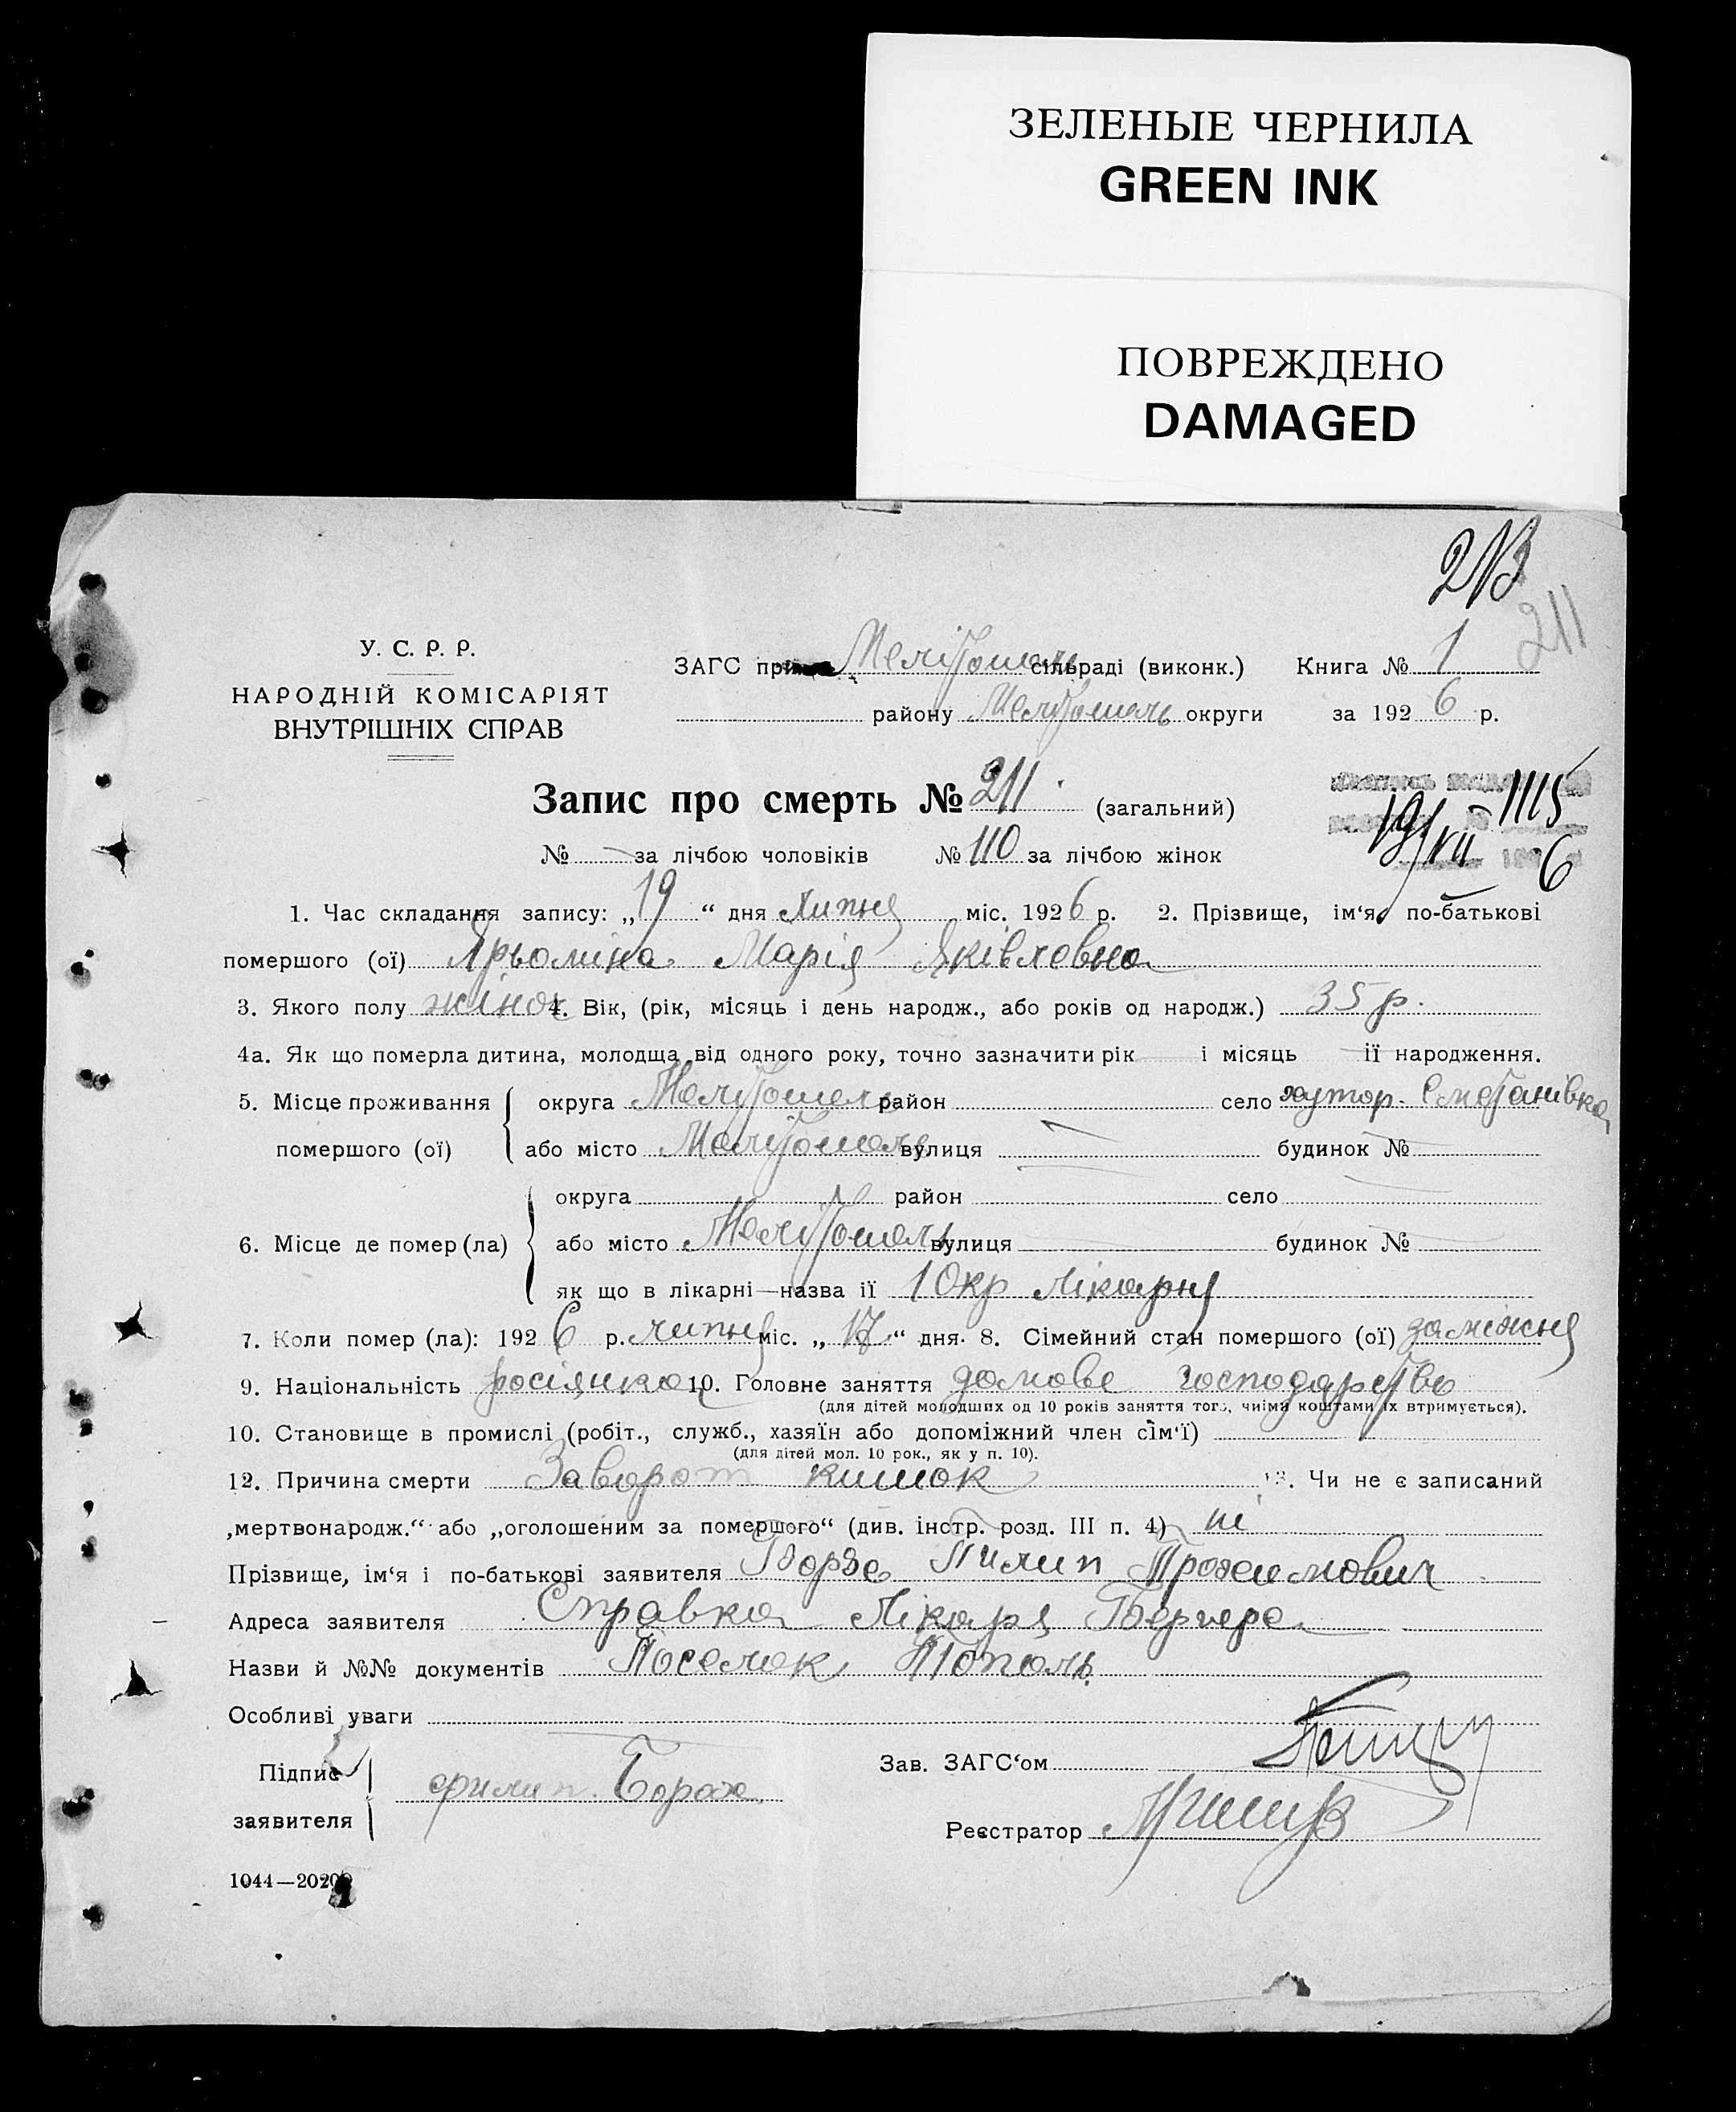 ЗЕЛЕНЫЕ ЧЕРНИЛА
GREEN INK
ПОВРЕЖДЕНО
DAMAGED
213
211
У. С. Р. Р.
НАРОДНІЙ КОМІСАРІЯТ
ВНУТРІШНІХ СПРАВ
ЗАГС при Мелітополь сільраді (виконк.) Книга № 1
району Мелітополь округи за 1926 р.
Запис про смерть № 211 (загальний)
1115
19/VII 6
№ — за лічбою чоловіків № 110 за лічбою жінок
1. Час складання запису: „19“ дня Липня міс. 1926 р. 2. Прізвище, ім‘я, по-батькові
помершого (ої) Ярьоміна Марія Яківловна
3. Якого полу жіноч 4. Вік, (рік, місяць і день народж., або років од народж.) 35 р.
4а. Як що померла дитина, молодща від одного року, точно зазначити рік і місяць її народження.
5. Місце проживання округа Мелітополь район село хутор. Сметанівка
помершого (ої) або місто Мелітополь вулиця — будинок № —
округа район село
6. Місце де помер (ла) або місто Мелітополь вулиця — будинок № —
як що в лікарні—назва її 1 Окр лікарня
7. Коли помер (ла): 1926 р. липня міс. „17“ дня. 8. Сімейний стан помершого (ої) заміжня
9. Національність росіянка 10. Головне заняття домове господарство
(для дітей молодших од 10 років заняття того, чиїми коштами їх втримується).
10. Становище в промислі (робіт., служб., хазяїн або допоміжний член сім‘ї)
(для дітей мол. 10 рок., як у п. 10).
12. Причина смерти Заворот кишок 13. Чи не є записаний
„мертвонародж.“ або „оголошеним за помершого“ (див. інстр. розд. III п. 4) ні
Прізвище, ім‘я і по-батькові заявителя Пилип
Адреса заявителя Справка Лікаря
Назви й №№ документів Поселок Тополь
Особливі уваги
Підпис
заявителя филип
Зав. ЗАГС‘ом
Реєстратор
1044—20200